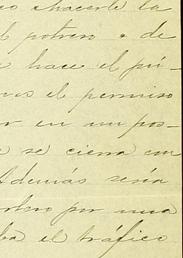 hacerle la
el potrero o de
hace el pú-
el permiso
en un pos-
se cierra con
Además sería
por una
el tráfico